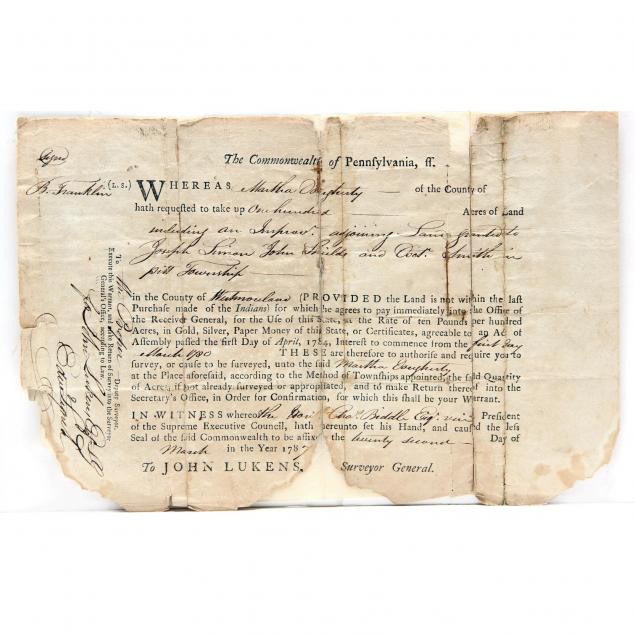 Signed
B. Franklin (L. S.)
The Commonwealth of Pennſylvania, ſſ.
WHEREAS Martha Dougherty of the County of
hath requeſted to take up One hundred Acres of Land
including an Improvt. adjoining Land granted to
Joseph Simon John Shields and Smith in
pitt Township
in the County of Westmoreland (PROVIDED the Land is not within the laſt
Purchaſe made of the Indians) for which he agrees to pay immediately into the Office of
the Receiver General, for the Uſe of this State, at the Rate of ten Pounds per hundred
Acres, in Gold, Silver, Paper Money of this State, or Certificates, agreeable to an Act of
Aſſembly paſſed the firſt Day of April, 1784, Intereſt to commence from the first Day
March 1780 THESE are therefore to authoriſe and require you to
ſurvey, or cauſe to be ſurveyed, unto the ſaid Martha Dougherty
at the Place aforeſaid, according to the Method of Townſhips appointed, the ſaid Quantity
of Acres, if not already ſurveyed or appropriated, and to make Return thereof into the
Secretary's Office, in Order for Confirmation, for which this ſhall be your Warrant.
IN WITNESS whereof the Hon. Chas. Biddle Esq. vice Preſident
of the Supreme Executive Council, hath hereunto ſet his Hand, and cauſed the leſs
Seal of the ſaid Commonwealth to be affixed the twenty second Day of
March in the Year 1787
To JOHN LUKENS, Surveyor General.
To Mr. Deputy Surveyor.
Execute this Warrant, and make Return of Survey into the Surveyor
General's Office, according to Law.
John Lukens